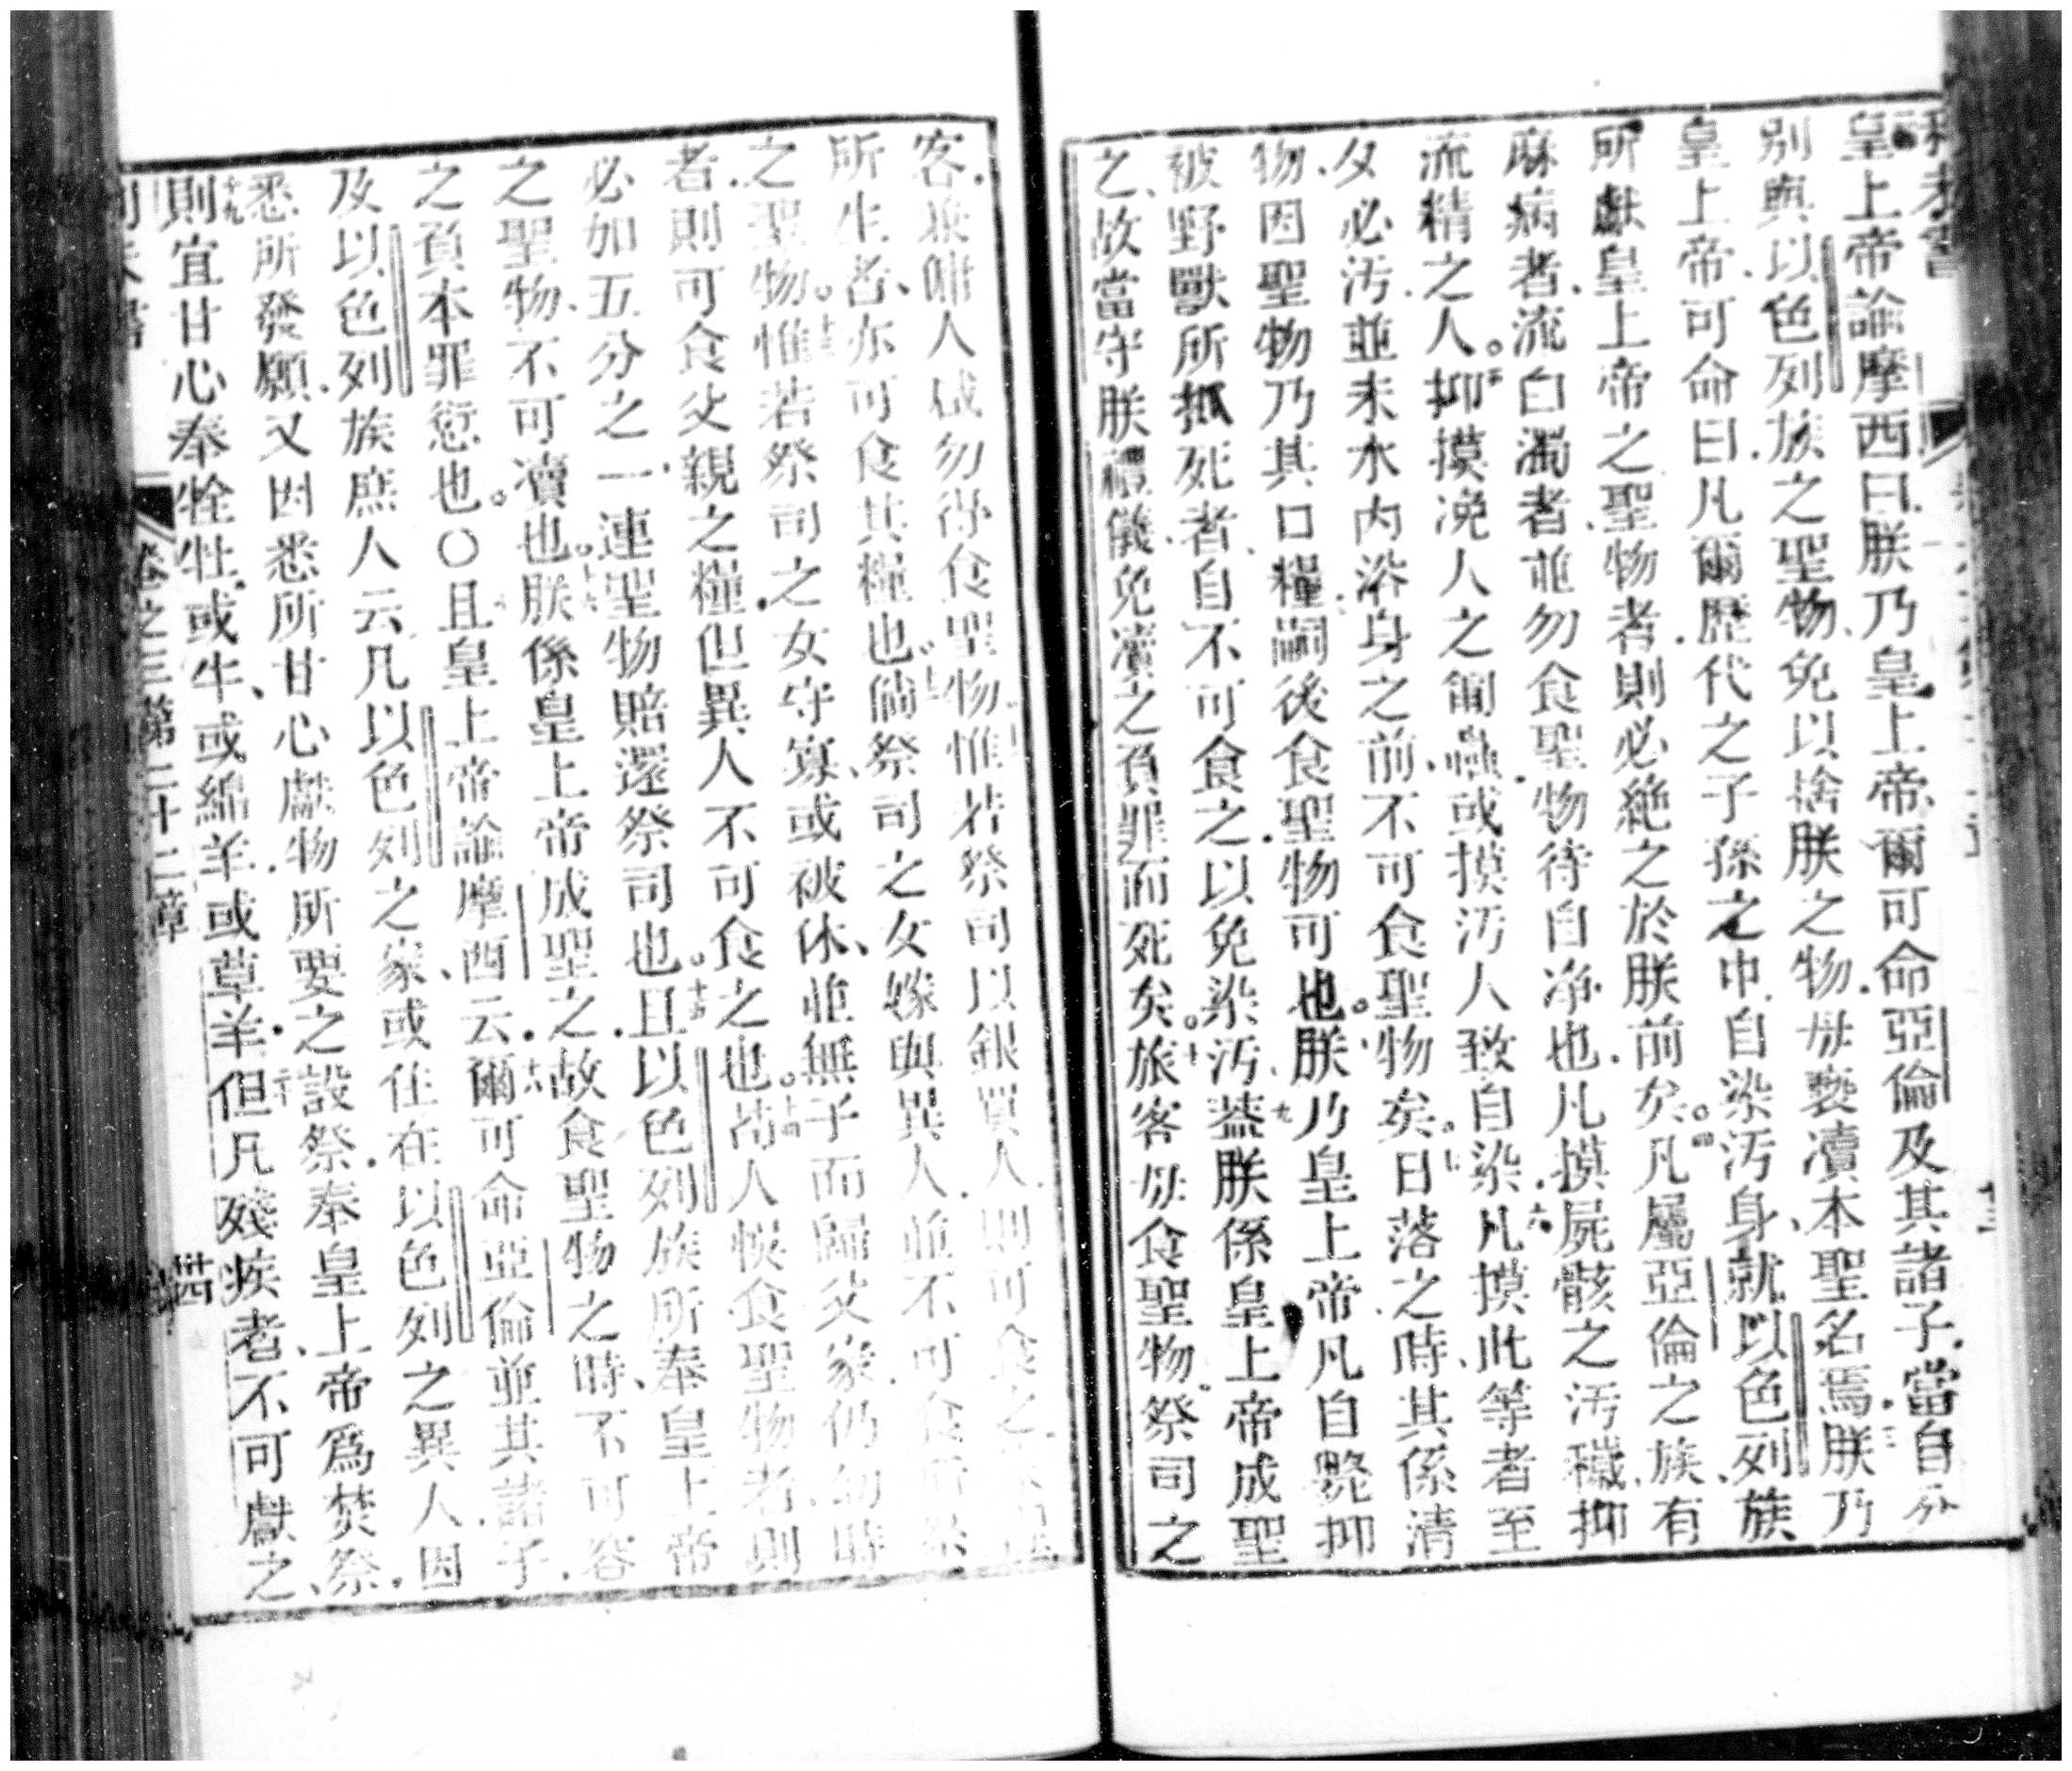 皇上帝諭摩西曰、朕乃皇上帝、爾可命亞倫及其諸子、當自分
別與以色列族之聖物、免以捨朕之物、毋褻凟本聖名焉、朕乃
皇上帝、可命曰、凡爾歷代之子孫之中、自染汚身、就以色列族
所獻皇上帝之聖物者、則必絶之於朕前矣。凡屬亞倫之族、有
麻病者、流白濁者、並勿食聖物、待自凈也、凡摸屍骸之汚穢、抑
流精之人。抑摸凂人之匍蟲、或摸汚人致自染、凡摸此等者、至
夕必汚、並未水内浴身之前、不可食聖物矣。日落之時、其係清
物、因聖物乃其口糧、嗣後食聖物可也。朕乃皇上帝、凡自斃、抑
被野獸所抓死者、自不可食之、以免染汚、葢朕係皇上帝成聖
之、故當守朕禮儀、免凟之負罪而死矣。旅客毋食聖物、祭司之
客、兼傭人、咸勿得食聖物、惟若祭司以銀買人、則可食之
所生者、亦可食其糧也。倘祭司之女嫁與異人、並不可食所祭
之聖物。惟若祭司之女守寡、或被休、並無子而歸父家、仍幼時
者、則可食父親之糧、但異人不可食之也。若人悞食聖物者、則
必如五分之一、連聖物賠還祭司也。且以色列族所奉皇上帝
之聖物、不可凟也。朕係皇上帝成聖之、故食聖物之時、不可容
之負本罪愆也。〇且皇上帝諭摩西云、爾可命亞倫並其諸子、
及以色列族庶人云、凡以色列之家、或住在以色列之異人、因
悉所發願、又因悉所甘心獻物、所要之設祭、奉皇上帝爲焚祭、
十九則宜甘心奉牷牡、或牛、或綿羊、或草羊、但凡殘疾者、不可獻之、
卷之三第二十二章 卌四